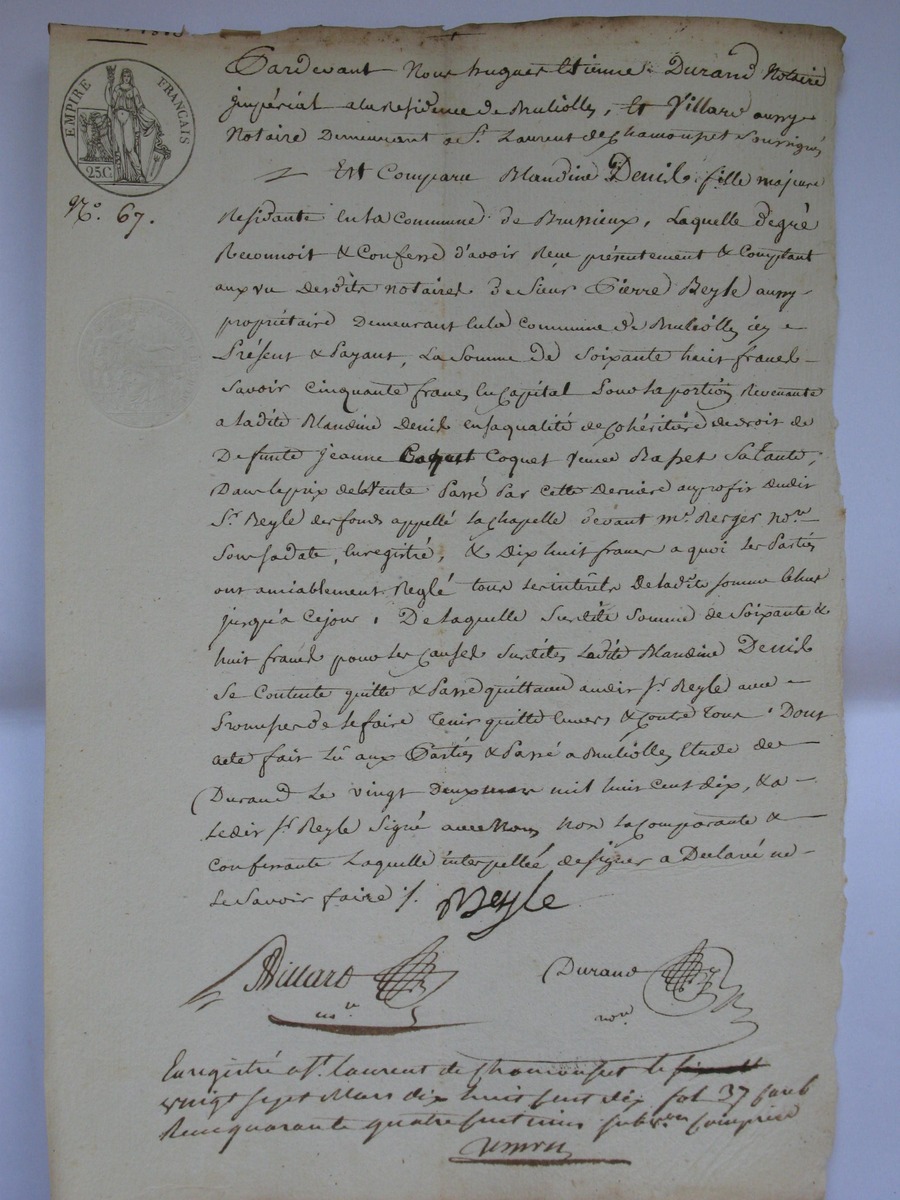 EMPIRE FRANÇAIS
25 C
N.° 67.
Pardevant Nous hugues Etienne Durand Notaire
jmpérial a la Residence de Bruliolles, Et Villard aussy
Notaire Demeurant a S.t Laurent de Chamousset Soussignés
Est Comparu Blandine Denis fille majeure
Residante En la Commune de Brussieux, Laquelle de gré
Reconnoit & Confesse d'avoir Reçu présentement & Comptant
aux vu desdits notaires De Sieur Pierre Beyle aussy
propriétaire Demeurant En la Commune de Brulliolles icy
Présent & Payant, La Somme de Soixante huit francs
Savoir Cinquante francs En Capital Pour La portion Revenante
a Ladite Blandine Denis En sa qualité de Cohéritière de droit de
Defunte Jeanne Coquet Veuve Bapet Sa Tante,
Dans Le prix de la Vente Passé Par Cette Derniere au profit dudit
S.r Beyle des fonds appellé La Chapelle devant m.e Berger no.re
Sous sa date, Enregistré, & Dix huit francs a quoi Les Parties
ont amiablement Reglé tous Les intérêts de Lad.te somme Echus
jusqu'à Ce jour. De Laquelle Susdite Somme de Soixante &
huit francs pour Les Causes Susdites Ladite Blandine Denis
Se Contente quitte & Passe quittance audit S.r Beyle avec
Promesse de Le faire Tenir quitte Envers & Contre Tous. Dont
acte fait Lû aux Parties & Passé a Brulliolles Etude de
Durand Le vingt Deux mars mil huit cent dix, & a
Ledit S.r Beyle Signé avec Nous Non La Comparante &
Confessante Laquelle interpellée de signer a Déclaré ne
Le Savoir faire ./.
Beyle
Villard
no.re
Durand
no.re
Enregistré a S.t Laurent de Chamousset le
vingt sept Mars dix huit cent dix fol 37
Reçu quarante quatre centimes subv.on comprise